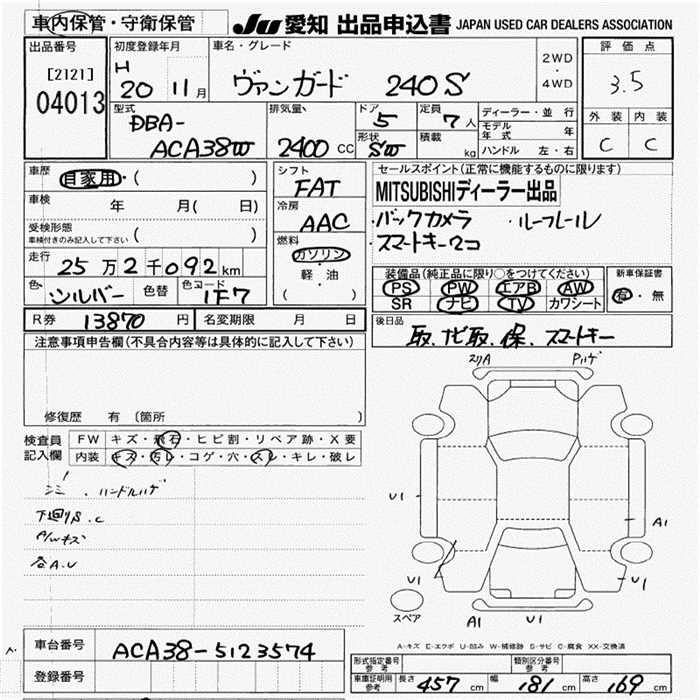 車内保管・守衛保管
JU 愛知 出品申込書 JAPAN USED CAR DEALERS ASSOCIATION
出品番号
[2121]
04013
初度登録年月
H
20 11月
車名・グレード
ヴァンガード 240S
2WD
・
4WD
評価点
3.5
外装 内装
C C
型式
DBA-
ACA38W
排気量
2400 CC
ドア
5
形状
SW
定員
7 人
積載
kg
ディーラー・並行
モデル年式 年
ハンドル 左・右
車歴
自家用・( )
車検
年 月( 日)
受検形態
車検付きのみ記入して下さい ( )
走行
25万2千092km
色 シルバー 色替 色コード 1F7
シフト
FAT
冷房
AAC
燃料
ガソリン
・
軽・油
( )
セールスポイント(正常に機能するものに限ります)
MITSUBISHIディーラー出品
・バックカメラ ・ルーフレール
・スマートキー2コ
装備品(純正品に限り○をつけてください)
PS PW エアB AW
SR ナビ TV カワシート
新車保証書
有・無
R券 13870 円 名変期限 月 日
後日品
取、ナビ取、保、スマートキー
注意事項申告欄(不具合内容等は具体的に記入して下さい)
修復歴 有 〔箇所 〕
検査員記入欄
FW キズ・飛石・ヒビ割・リペア跡・X要
内装 キズ・汚レ・コゲ・穴・スレ・キレ・破レ
シミ、ハンドルハゲ
下回りS.C
A/Wキズ
各A.U
スリA Pハゲ
U1
A1
U1
U1
A1
U1
スペア
A-キズ E-エクボ U-凹み W-補修跡 S-サビ C-腐食 XX-交換済
車台番号 ACA38-5123574
登録番号
形式指定番号 参考
類別区分番号 参考
車庫証明用参考 長さ 457 cm 幅 181 cm 高さ 169 cm